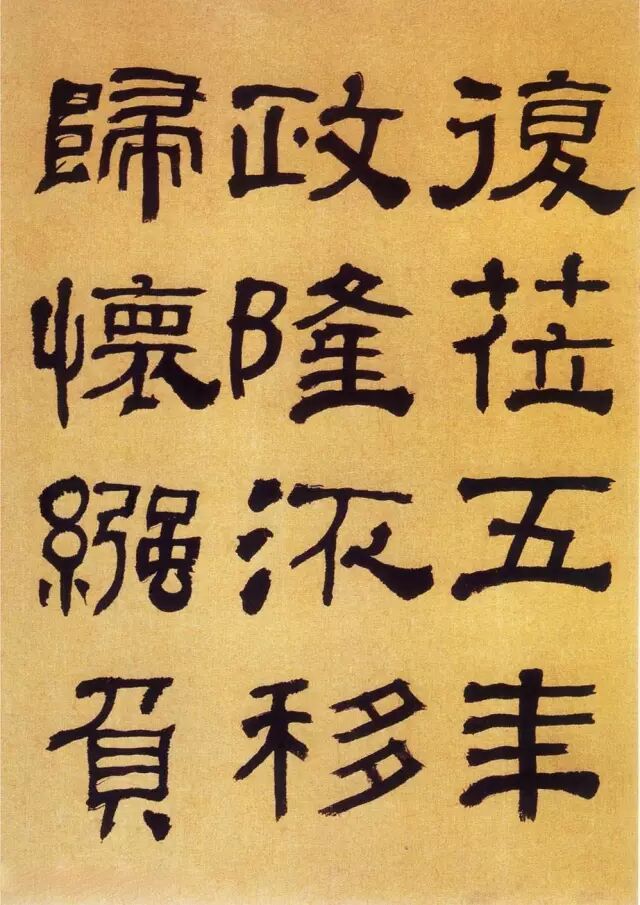 復莅五年
政隆沠移
歸懷繦負